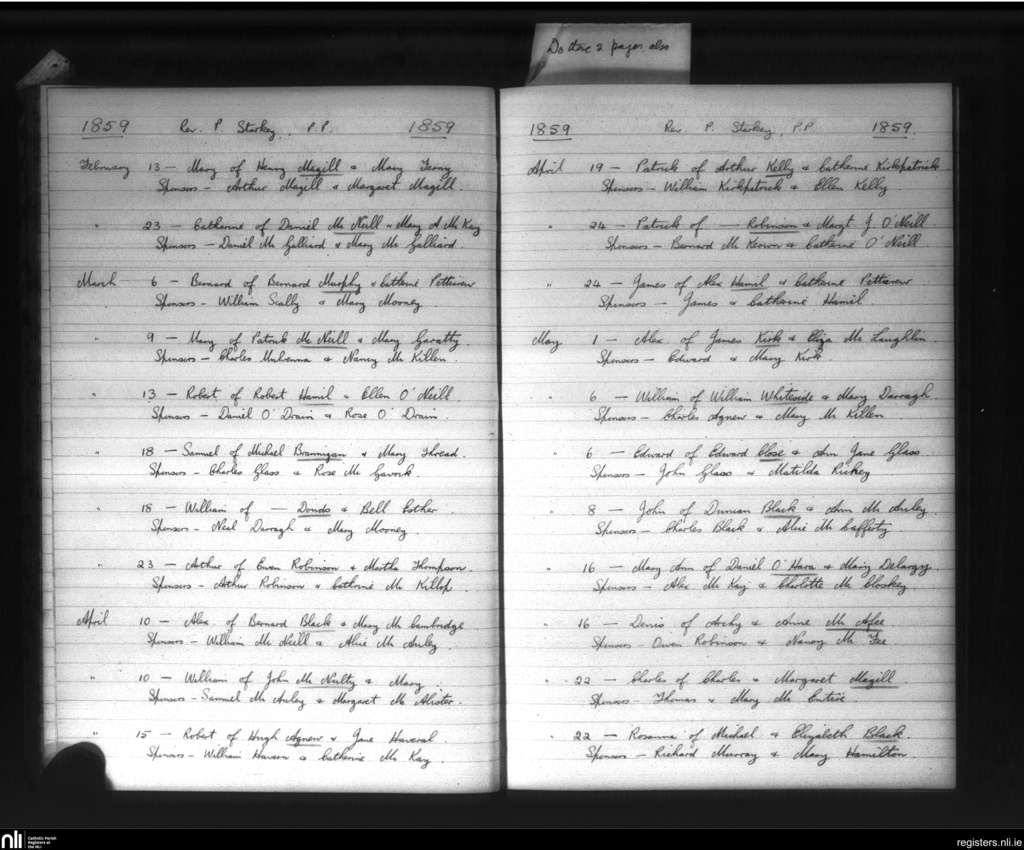 Do these 2 pages also
1859 Rev. P. Starkey, P.P. 1859
February 13 — Mary of Henry Magill & Mary
Sponsors — Arthur Magill & Margaret Magill.
" 23 — Catherine of Daniel Mc Neill & Mary A Mc Kay
Sponsors — Daniel Mc Galliard & Mary Mc Galliard.
March 6 — Bernard of Bernard Murphy & Catherine Petticrew
Sponsors — William Scally & Mary Mooney
" 9 — Mary of Patrick Mc Neill & Mary Garatty.
Sponsors — Charles & Nancy Mc Killen.
" 13 — Robert of Robert Hamil & Ellen O'Neill
Sponsors — Daniel O'Drain & Rose O'Drain.
" 18 — Samuel of Michael Brannigan & Mary Thread.
Sponsors — Charles Glass & Rose Mc
" 18 — William of — & Bell Esther
Sponsors — Neal Darragh & Mary Mooney.
" 23 — Arthur of Ewen Robinson & Martha Thompson.
Sponsors — Arthur Robinson & Catherine Mc Killop.
April 10 — Alex. of Bernard Black & Mary Mc Cambridge
Sponsors — William Mc Neill & Alice Mc Auley.
" 10 — William of John Mc Nulty & Mary
Sponsors — Samuel Mc Auley & Margaret Mc Alister.
" 15 — Robert of Hugh Agnew & Jane Haveral.
Sponsors — William & Catherine Mc Kay.
1859 Rev. P. Starkey, P.P 1859.
April 19 — Patrick of Arthur Kelly & Catherine Kirkpatrick
Sponsors — William Kirkpatrick & Ellen Kelly.
" 24 — Patrick of — Robinson & Margt J. O'Neill
Sponsors — Bernard Mc Keown & Catherine O'Neill.
" 24 — James of Alex Hamil & Catherine Petticrew
Sponsors — James & Catherine Hamil
May 1 — Alex of James Kirk & Eliza Mc Laughlin
Sponsors — Edward & Mary Kirk.
" 6 — William of William Whiteside & Mary Darragh
Sponsors — Charles Agnew & Mary Mc Killen
" 6 — Edward of Edward Close & Ann Jane Glass
Sponsors — John Glass & Matilda Rickey
" 8 — John of Duncan Black & Ann Mc Auley
Sponsors — Charles Black & Alice Mc Cafferty
" 16 — Mary Ann of Daniel O'Hara & Mary Delargy
Sponsors — Alex Mc Kay & Charlotte Mc Closkey.
" 16 — Denis of Archy & Anne Mc Afee
Sponsors — Owen Robinson & Nancy Mc Fee
" 22 — Charles of Charles & Margaret Magill
Sponsors — Thomas & Mary Mc Entire
" 22 — Rosanna of Michael & Elizabeth Black.
Sponsors — Richard Murray & Mary Hamilton.
nli Catholic Parish Registers at the NLI
registers.nli.ie